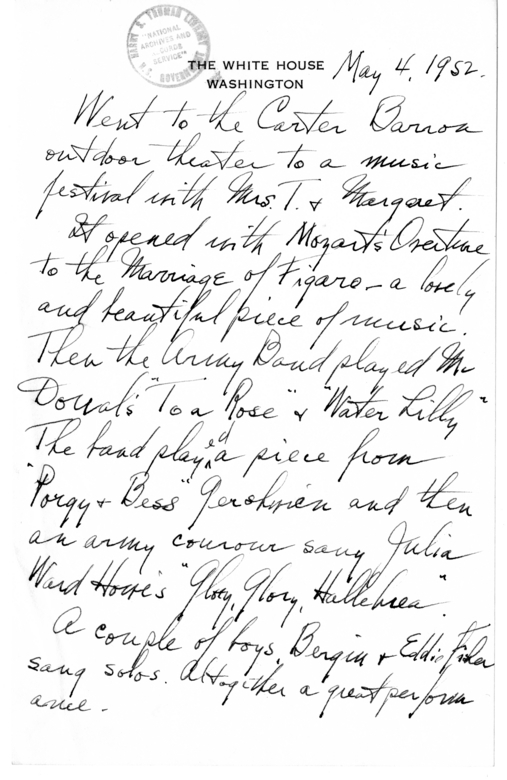 HARRY S. TRUMAN LIBRARY
"NATIONAL
ARCHIVES AND
RECORDS
SERVICE"
U.S. GOVERNMENT
THE WHITE HOUSE
WASHINGTON
May 4, 1952.
Went to the Carter Barron
outdoor theater to a music
festival with Mrs. T. & Margaret.
It opened with Mozart's Overture
to the Marriage of Figaro - a lovely
and beautiful piece of music.
Then the Army Band played Mc
Dowal's "To a Rose" & "Water Lilly"
The band played a piece from
"Porgy & Bess" Gershwien and then
an army courour sang Julia
Ward Howe's "Glory, Glory, Hallelu
A couple of boys, Bergin & Eddie Fisher
sang solos. Altogether a great perform
ance.